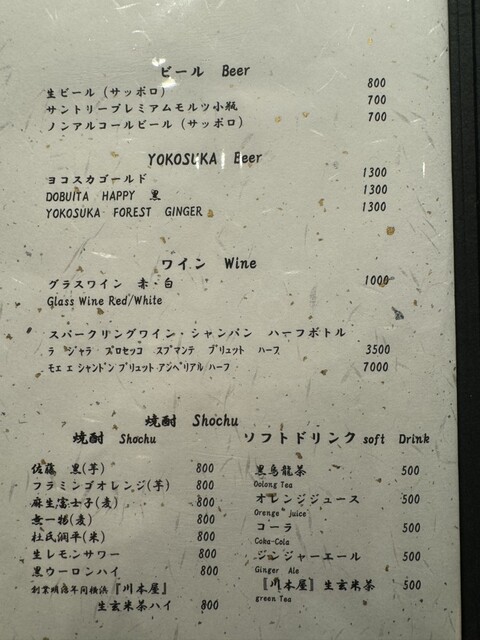 ビール Beer
生ビール (サッポロ) 800
サントリープレミアムモルツ小瓶 700
ノンアルコールビール (サッポロ) 700
YOKOSUKA Beer
ヨコスカゴールド 1300
DOBUITA HAPPY 黒 1300
YOKOSUKA FOREST GINGER 1300
ワイン Wine
グラスワイン 赤・白 1000
Glass Wine Red/White
スパークリングワイン・シャンパン ハーフボトル
ラ ジャラ プロセッコ スプマンテ ブリュット ハーフ 3500
モエ エ シャンドン ブリュット アンペリアル/ハーフ 7000
焼酎 Shochu
焼酎 Shochu
佐藤 黒(芋) 800
フラミンゴオレンジ(芋) 800
麻生富士子(麦) 800
無一物(麦) 800
杜氏潤平(米) 800
生レモンサワー 800
黒ウーロンハイ 800
創業明治年間横浜『川本屋』
生玄米茶ハイ 800
ソフトドリンク soft Drink
黒烏龍茶 500
Oolong Tea
オレンジジュース 500
Orenge juice
コーラ 500
Coka-Cola
ジンジャーエール 500
Ginger Ale
『川本屋』生玄米茶 500
green Tea